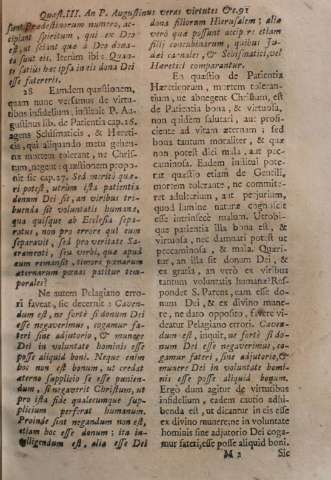 Quæst.III. An P. Augustinus veras virtutes &c.91
sunt Prædestinorum numero, ac-
cipiunt Spiritum, qui ex Deo
est, ut sciant quæ à Deo dona-
ta sunt eis. Item ibi: Quan-
satius hoc ipsa in eis dona Dei
esse fatereris.
28 Eamdem quæstionem,
quam nunc versamus de virtu-
tibus infidelium, indicat P. Au-
gustinus lib. de Patientia cap.26.
agens Schismaticis, & Hæreti-
cis, qui aliquando metu gehen-
næ mortem tolerant, ne Chri-
stum negent: quæstionem propo-
nit sic cap.27. Sed meritò quæ-
ri potest, utrùm ista patientia
donum Dei sit, an viribus tri-
buenda sit voluntatis humanæ,
qua quisque ab Ecclesia sepa-
ratus, non pro errore qui eum
separavit, sed pro veritate Sa-
cramenti, seu verbi, quæ apud
eum remansit, timore pœnarum
æternarum pœnas patitur tem-
porales?
Ne autem Pelagiano erro-
ri faveat, sic decernit: Caven-
dum est, ne fortè si donum Dei
esse negaverimus, cogamur fa-
teri sine adjutorio, & munere
Dei in voluntate hominis esse
posse aliquid boni. Neque enim
hoc non est bonum, ut credat
æterno supplicio se esse punien-
dum, si negaverit Christum, ut
pro ista fide qualecumque sup-
plicium perferat humanum.
Proinde sint negandum non est,
etiam hoc esse donum; ita in-
telligendum est, alia esse Dei
dona filiorum Hierusalem; alia
verò quæ possunt accipere etiam
filii concubinarum, quibus Ju-
dæi carnales, & Schismatici, vel
Hæretici comparantur.
Ex quæstio de Patientia
Hæreticorum, mortem toleran-
tium, ne abnegent Christum, est
de Patientia bona, & virtuosa,
non quidem salutari, aut pro-
ficiente ad vitam æternam; sed
bona tantum moraliter; & quæ
non potest dici mala, aut pec-
caminosa. Eadem institui pote-
rat quæstio etiam de Gentili,
mortem tolerante, ne commite-
ret adulterium, aut perjurium,
quod lumine naturæ cognoscit
esse intrinsecè malum. Utrobi-
que patientia illa bona est, &
virtuosa, nec damnari potest ut
peccaminosa, & mala. Quæri-
tur, an illa sit donum Dei, &
ex gratia, an verò ex viribus
tantum voluntatis humanæ? Res-
pondet S. Parens, eam esse do-
num Dei, & ex divino mune-
re, ne dato opposito, favere vi-
deatur Pelagiano errori. Caven-
dum est, inquit, ne fortè, si do-
num Dei esse negaverimus, co-
gamur fateri, sine adjutorio, &
munere Dei in voluntate homi-
nis esse posse aliquid bonum.
Ergo dum agitur de virtutibus
infidelium, eadem cautio adhi-
benda est, ut dicantur in eis esse
ex divino munere; ne in volunta te
hominis sine adjutorio Dei coga-
mur fateri, esse posse aliquid boni.
M 2 Sic